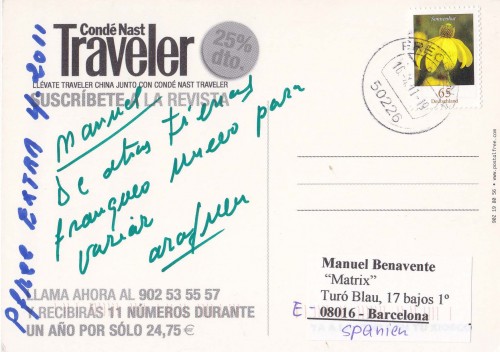 Condé Nast
Traveler
25%
dto.
LLÉVATE TRAVELER CHINA JUNTO CON CONDÉ NAST TRAVELER
SUSCRÍBETE A LA REVISTA
Manuel
De otras tierras
franqueo nuevo para
variar
LLAMA AHORA AL 902 53 55 57
Y RECIBIRÁS 11 NÚMEROS DURANTE
UN AÑO POR SÓLO 24,75 €
Pfree EXTRA 4/2011
Sonnenhut
65
Deutschland
50226
www.postalfree.com
902 19 80 56
Manuel Benavente
"Matrix"
Turó Blau, 17 bajos 1º
E- 08016 - Barcelona
Spanien